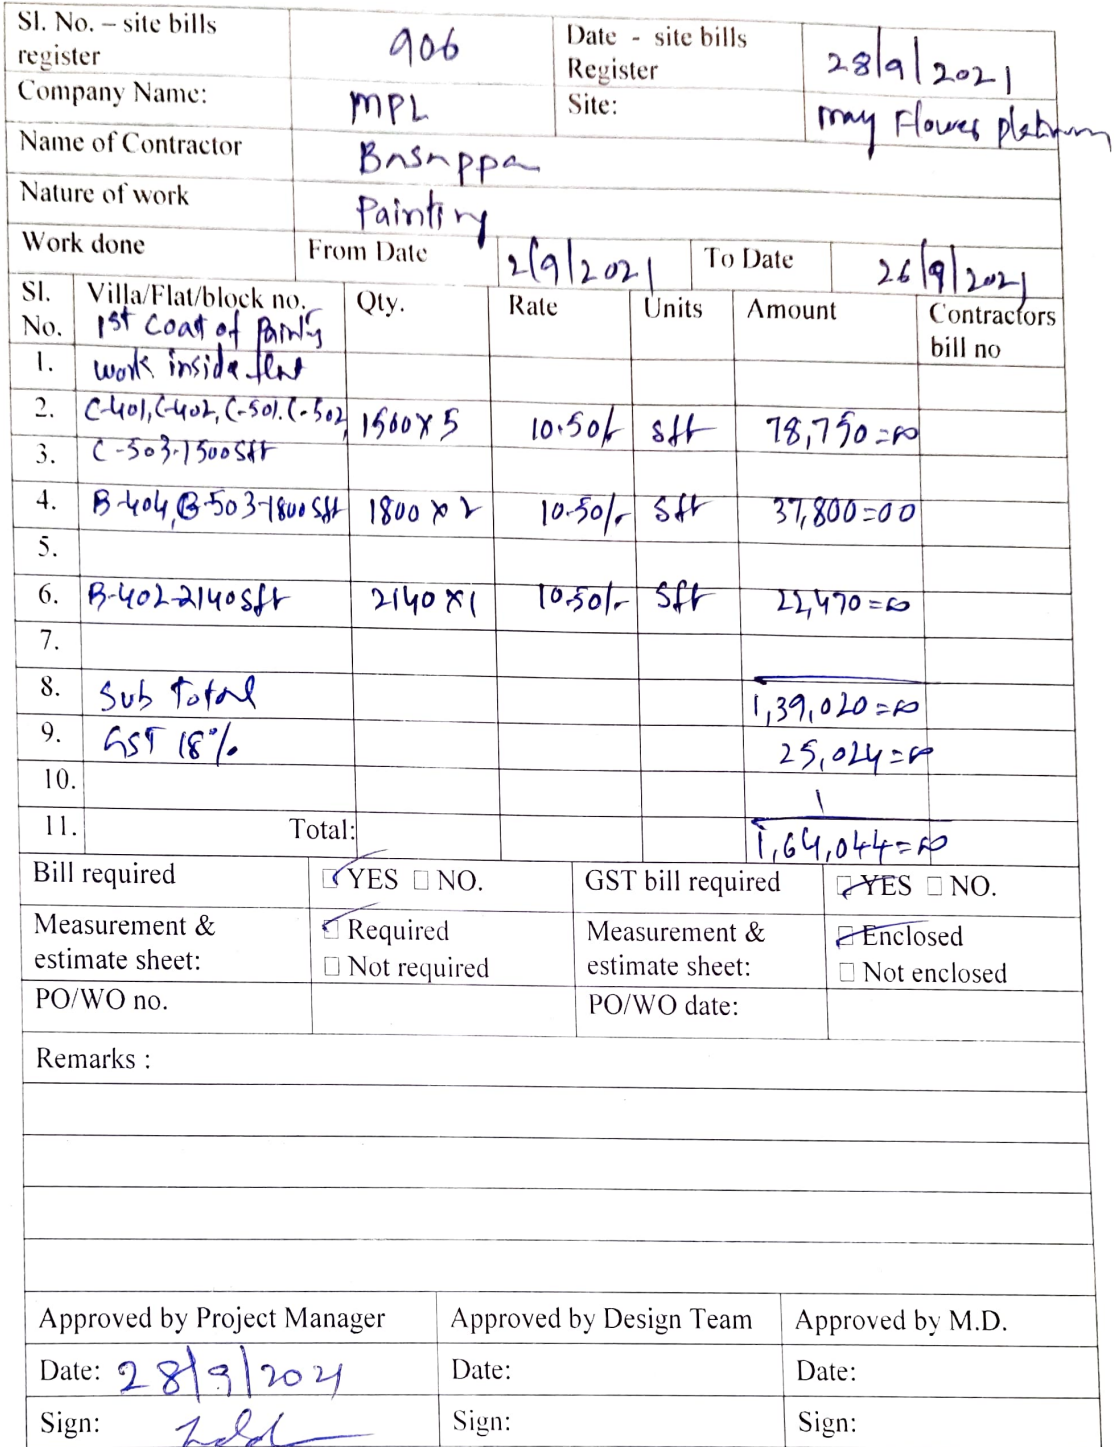 Sl. No. – site bills register 906 Date - site bills Register 28/9/2021
Company Name: MPL Site: may Flower platinum
Name of Contractor Basappa
Nature of work Painting
Work done From Date 2/9/2021 To Date 26/9/2021
Sl. No. Villa/Flat/block no. Qty. Rate Units Amount Contractors bill no
1st coat of Painting
1. work inside flat
2. C-401, C-402, C-501. C-502, 1500 x 5 10.50/- sft 78,750=00
3. C-503-1500 Sft
4. B-404, B-503-1800 Sft 1800 x 2 10.50/- Sft 37,800=00
5.
6. B-402-2140 Sft 2140 x 1 10.50/- Sft 22,470=00
7.
8. Sub Total 1,39,020=00
9. GST 18% 25,024=00
10.
11. Total: 1,64,044=00
Bill required YES NO. GST bill required YES NO.
Measurement & estimate sheet: Required Not required Measurement & estimate sheet: Enclosed Not enclosed
PO/WO no. PO/WO date:
Remarks :
Approved by Project Manager Approved by Design Team Approved by M.D.
Date: 28/9/2021 Date: Date:
Sign: Sign: Sign: